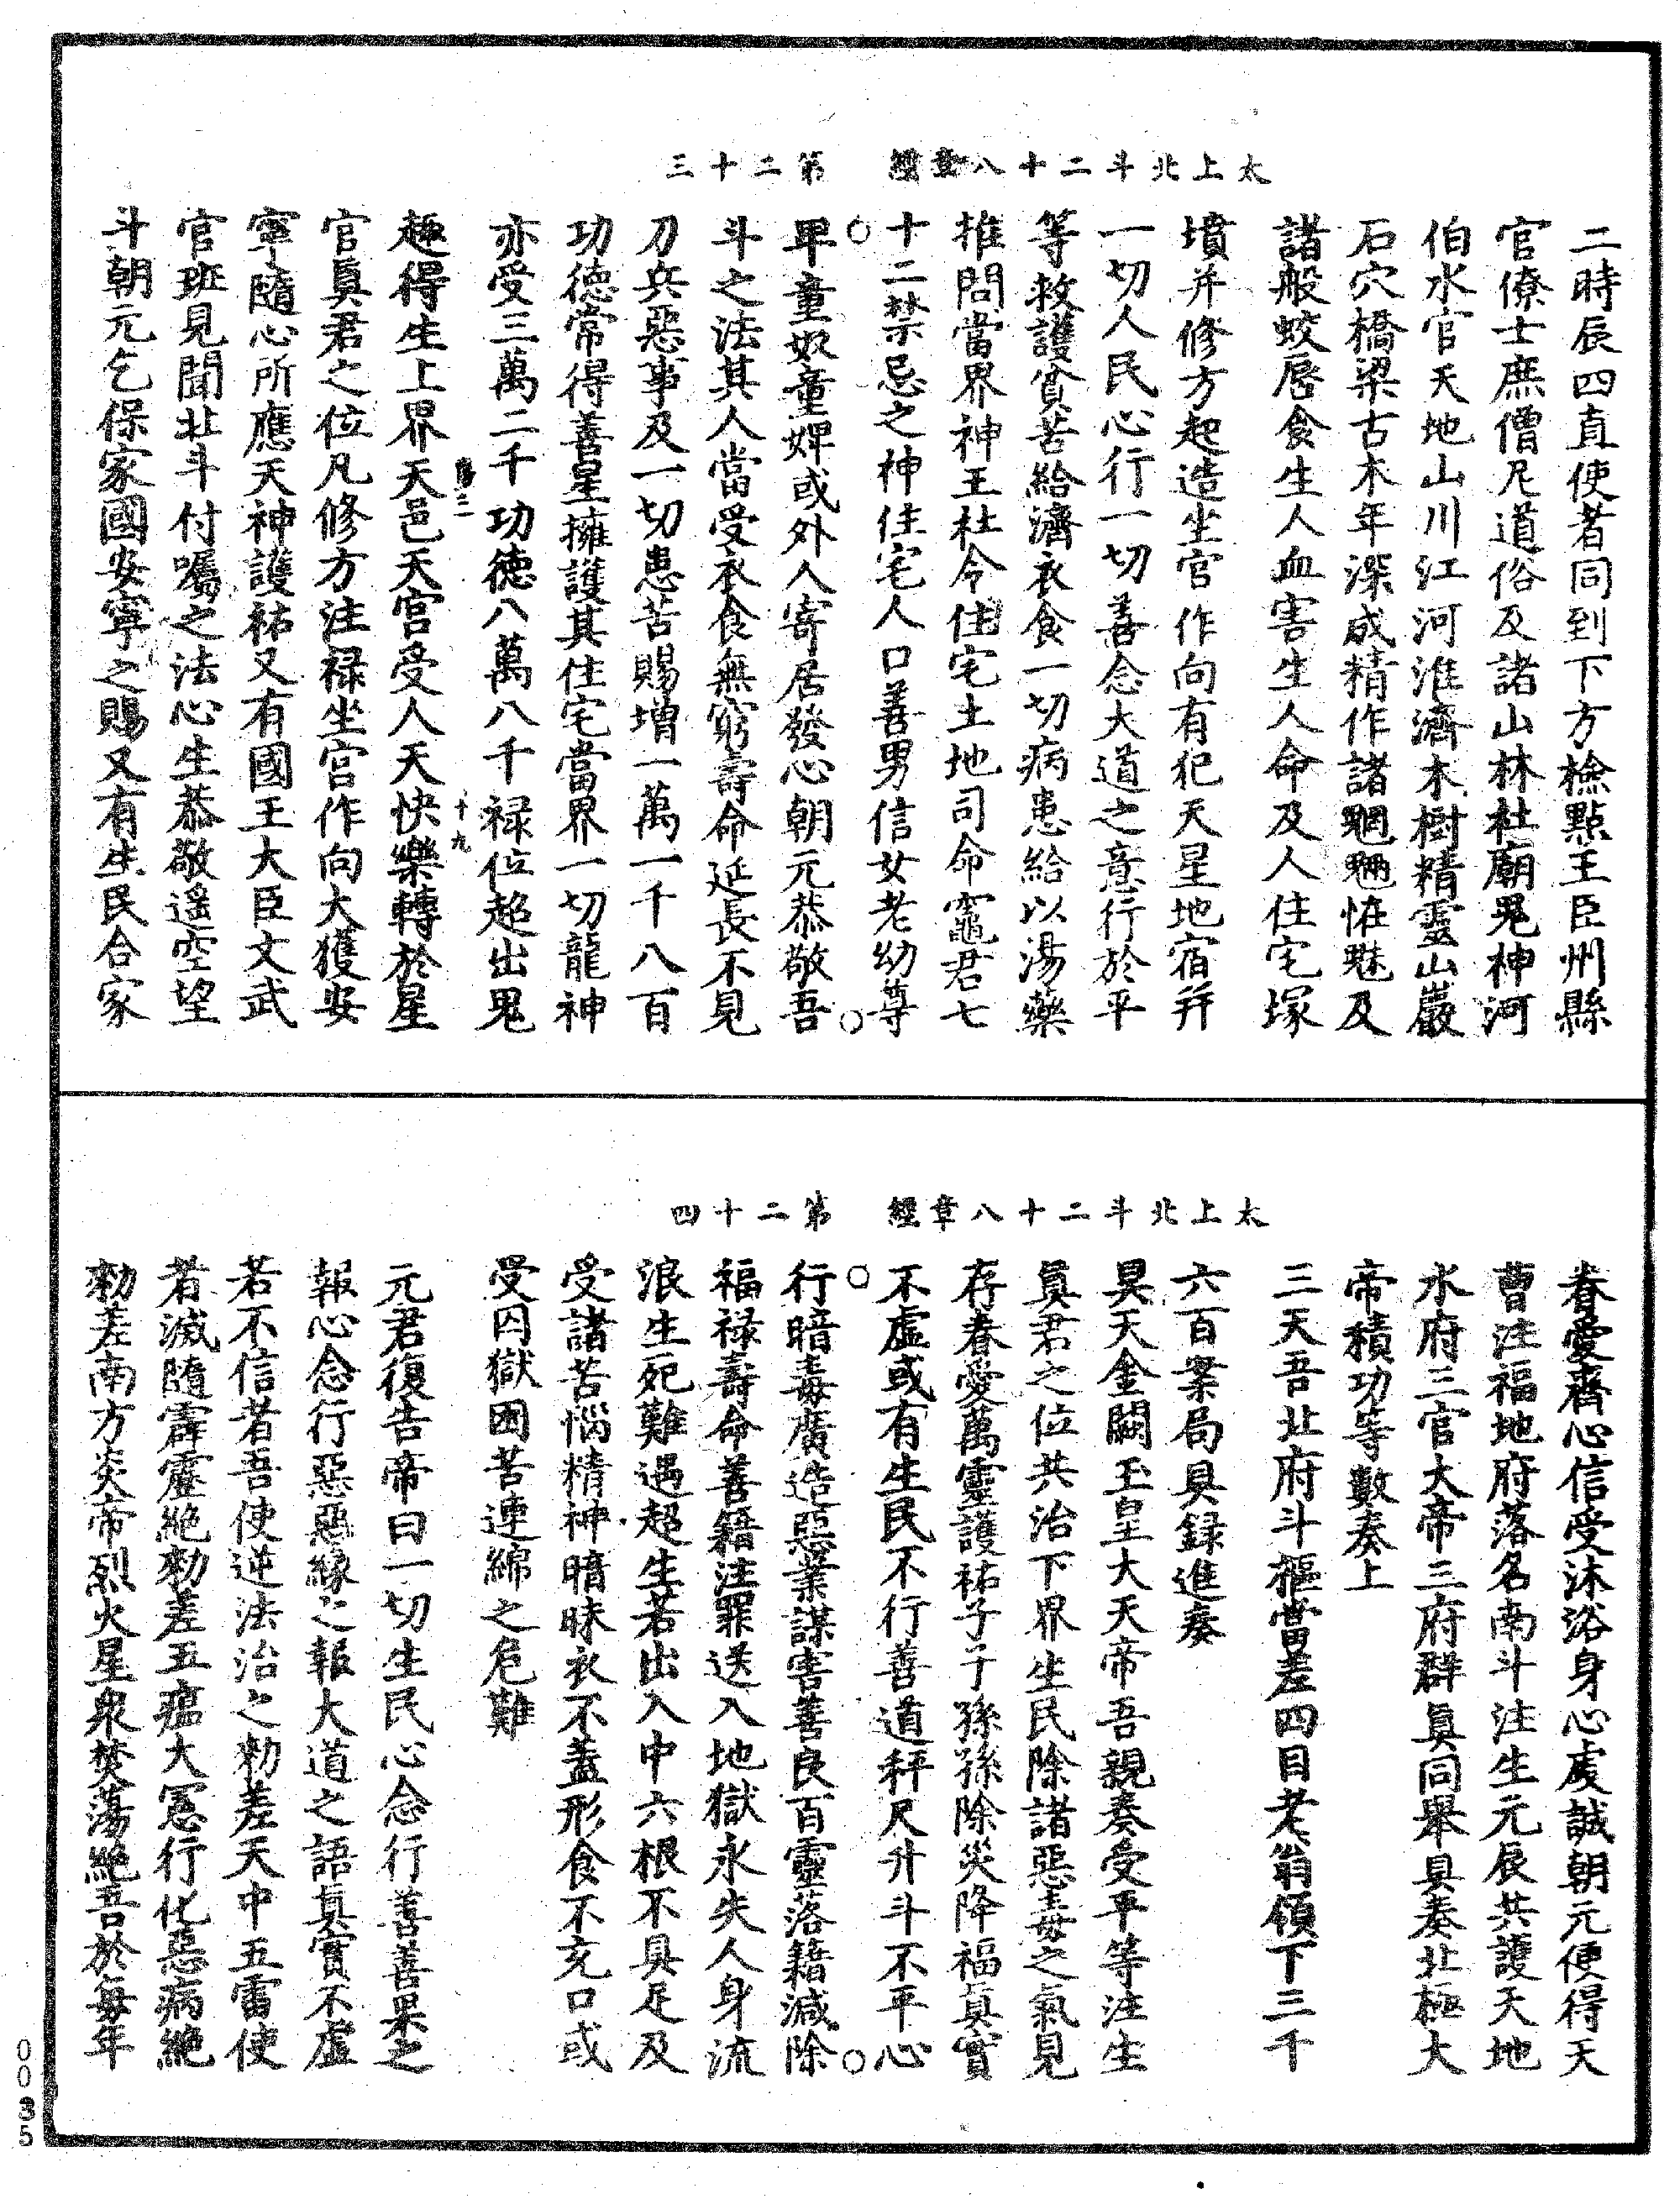 太上北斗二十八章經　第二十三
二時辰四直使者同到下方檢點王臣州縣
官僚士庶僧尼道俗及諸山林社廟鬼神河
伯水官天地山川江河淮濟木樹精靈山巖
石穴橋梁古木年深成精作諸魍魎恠魅及
諸般蛟唇食生人血害生人命及人住宅塚
墳并修方起造坐官作向有犯天星地宿并
一切人民心行一切善念大道之意行於平
等救護貧苦給濟衣食一切病患給以湯藥
推問當界神王社令住宅土地司命竈君七
十二禁忌之神住宅人口善男信女老幼尊
卑童奴童婢或外人寄居發心朝元恭敬吾
斗之法其人當受衣食無窮壽命延長不見
刀兵惡事及一切患苦賜增一萬一千八百
功德常得善星擁護其住宅當界一切龍神
亦受三萬二千功德八萬八千禄位超出鬼
三　十九
趣得生上界天邑天宫受人天快樂轉於星
官眞君之位凡修方注禄坐宫作向大獲安
寧隨心所應天神護祐又有國王大臣文武
官班見聞北斗付囑之法心生恭敬遥空望
斗朝元乞保家國安寧之賜又有生民合家
太上北斗二十八章經　第二十四
眷愛齋心信受沐浴身心虔誠朝元便得天
曹注福地府落名南斗注生元辰共護天地
水府三官大帝三府群眞同舉具奏北極大
帝積功等數奏上
三天吾北府斗樞當差四目老翁領下三千
六百案局具録進奏
昊天金闕玉皇大天帝吾親奏受平等注生
眞君之位共治下界生民除諸惡毒之氣見
存眷愛萬靈護祐子子孫孫除災降福眞實
不虛或有生民不行善道秤尺升斗不平心
行暗毒廣造惡業謀害善良百靈落籍減除
福禄壽命善籍注罪送入地獄永失人身流
浪生死難遇超生若出入中六根不具足及
受諸苦惱精神暗昧衣不蓋形食不充口或
受囚獄困苦連綿之危難
元君復告帝曰一切生民心念行善善果之
報心念行惡惡緣之報大道之語眞實不虛
若不信者吾使逆法治之勑差天中五雷使
者滅隨霹靂絶勑差五瘟大㤪行化惡病絶
勑差南方炎帝烈火星衆焚蕩絶吾於每年
0035